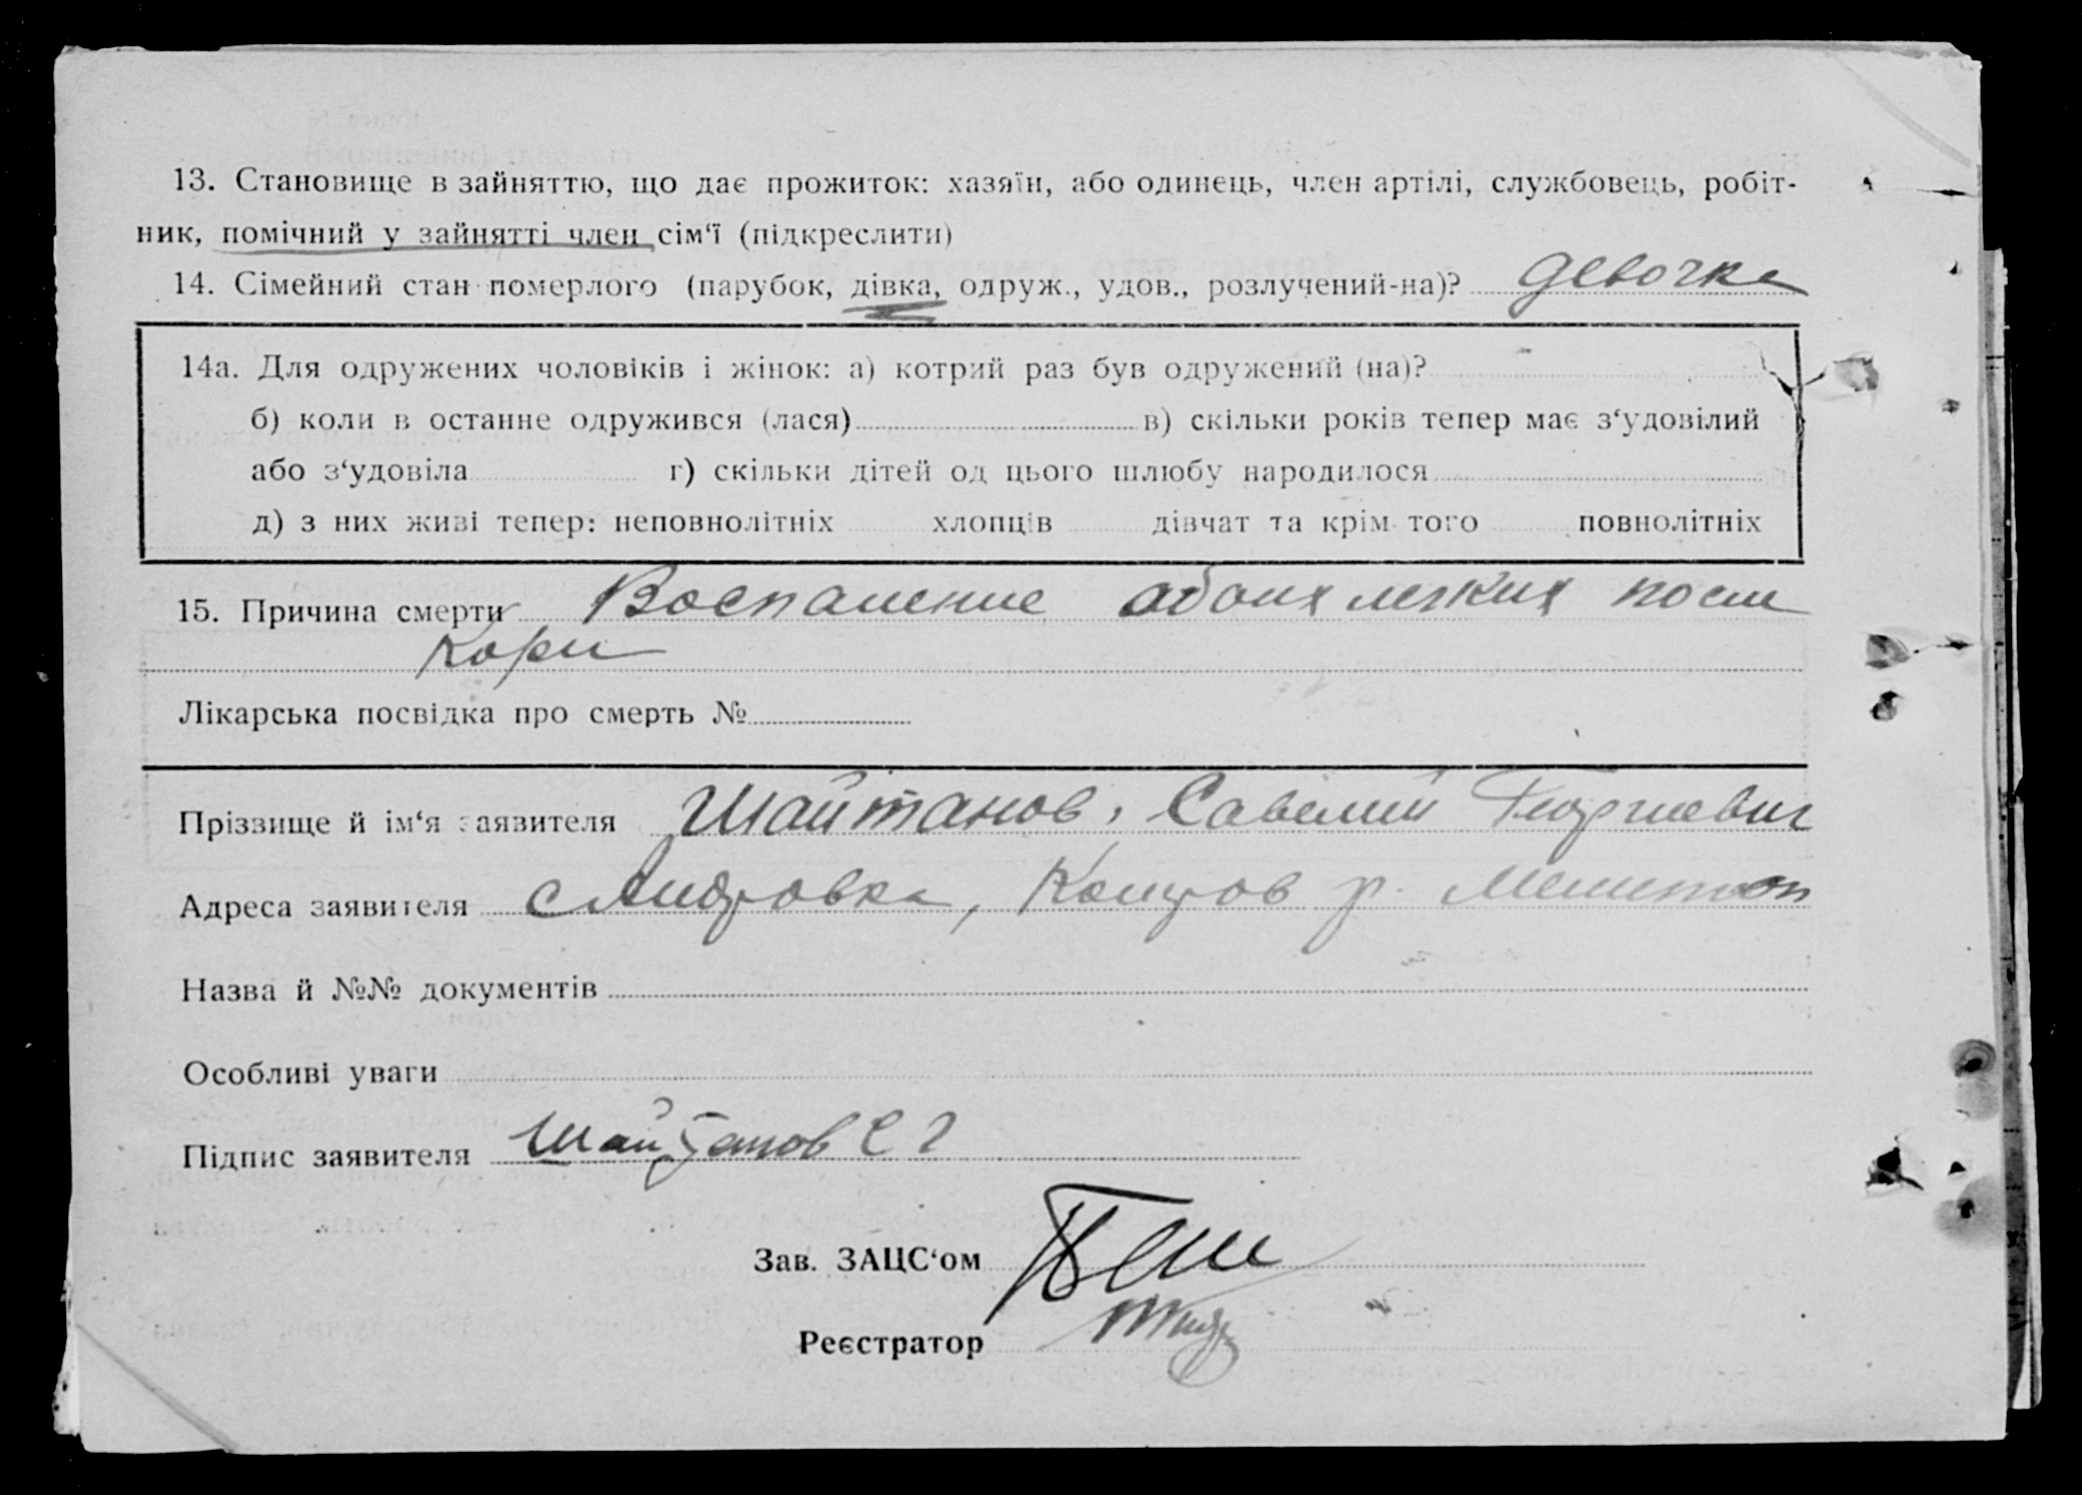 13. Становище в зайняттю, що дає прожиток: хазяїн, або одинець, член артілі, службовець, робіт-
ник, помічний у зайнятті член сім‘ї (підкреслити)
14. Сімейний стан померлого (парубок, дівка, одруж., удов., розлучений-на)? девочка
14а. Для одружених чоловіків і жінок: а) котрий раз був одружений (на)?
б) коли в останнє одружився (лася) в) скільки років тепер має з‘удовілий
або з‘удовіла г) скільки дітей од цього шлюбу народилося
д) з них живі тепер: неповнолітніх хлопців дівчат та крім того повнолітніх
15. Причина смерти Воспаление обоих легких после
Кори
Лікарська посвідка про смерть №
Прізвище й ім‘я заявителя Шайтанов, Савелий Георгиевич
Адреса заявителя с Андровка, р. Мелитоп
Назва й №№ документів
Особливі уваги
Підпис заявителя Шайтанов С Г
Зав. ЗАЦС‘ом
Реєстратор